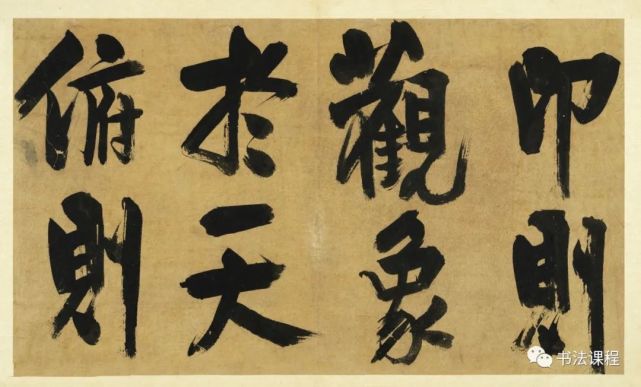 卬則
觀象
於天
俯則
书法课程